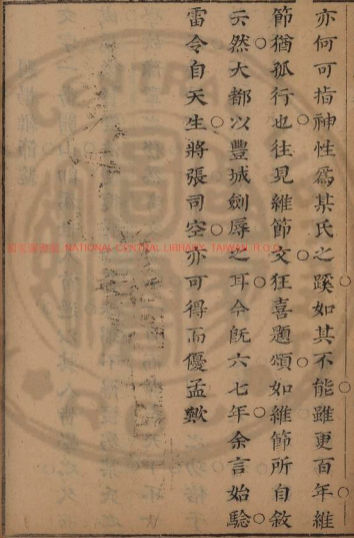 亦何可指神性爲某氏之蹊如其不能雖更百年維
節猶孤行也往見維節文狂喜題頌如維節所自敘
云然大都以豐城劍辱之耳今旣六七年余言始驗
雷令自天生將張司空亦可得而優孟歟
NATIONAL CENTRAL LIBRARY, TAIWAN, R.O.C.